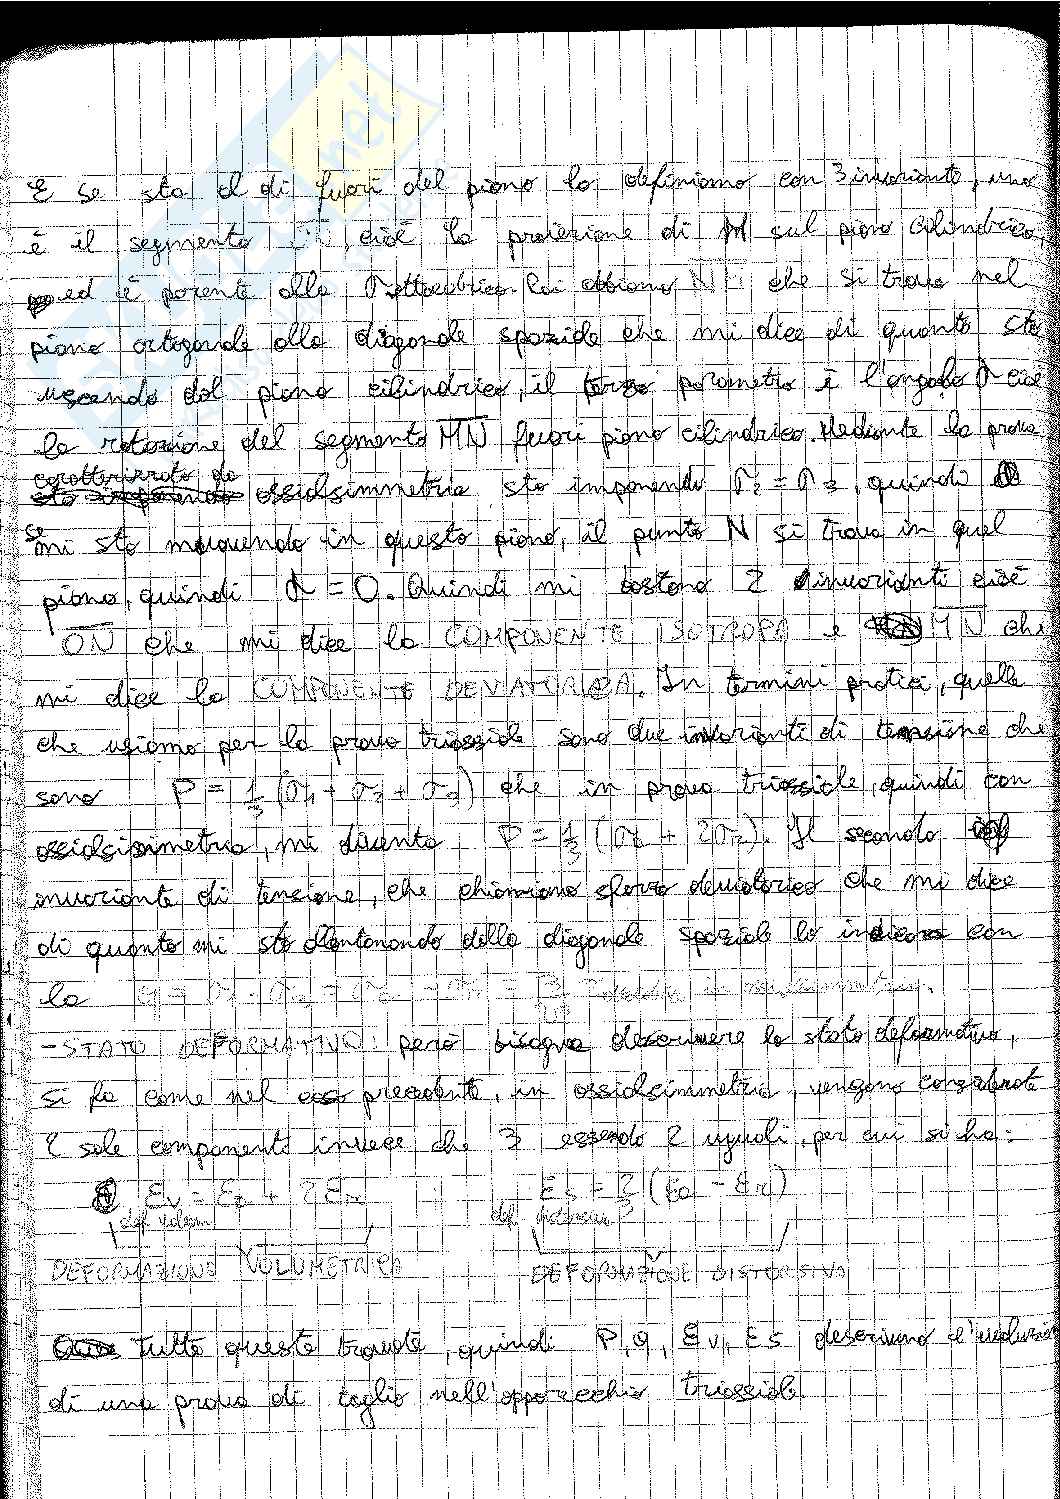 E se sta al di fuori del piano lo definiamo con 3 invarianti, uno
è il segmento ON, cioè la proiezione di M sul piano cilindrico,
ed è parente alla σottaedrica. Poi abbiamo NM che si trova nel
piano ortogonale alla diagonale spaziale che mi dice di quanto sto
uscendo dal piano cilindrico, il terzo parametro è l'angolo α cioè
la rotazione del segmento MN fuori piano cilindrico. Mediante la prova
caratterizzata da
assialsimmetria sto imponendo σ2 = σ3, quindi
se
mi sto muovendo in questo piano, il punto N si trova in quel
piano, quindi α = 0. Quindi mi bastano 2 invarianti cioè
ON che mi dice la COMPONENTE ISOTROPA e MN che
mi dice la COMPONENTE DEVIATORICA. In termini pratici, quelle
che usiamo per la prova triassiale sono due invarianti di tensione che
sono P = 1/3 (σ1 + σ2 + σ3) che in prova triassiale, quindi con
assialsimmetria, mi diventa P = 1/3 (σa + 2σr). Il secondo
invariante di tensione, che chiamiamo sforzo deviatorico che mi dice
di quanto mi sto allontanando dalla diagonale spaziale lo indico con
la q =
- STATO DEFORMATIVO: però bisogna descrivere lo stato deformativo,
si fa come nel caso precedente, in assialsimmetria, vengono considerate
2 sole componenti invece che 3 essendo 2 uguali, per cui si ha:
Ɛv = Ɛa + 2Ɛr Ɛs = 2/3 (Ɛa - Ɛr)
def. volum. def. distorsiva
DEFORMAZIONE VOLUMETRICA DEFORMAZIONE DISTORSIVA
Tutte queste trovate, quindi P, q, Ɛv, Ɛs descrivono l'evoluzione
di una prova di taglio nell'apparecchio triassiale